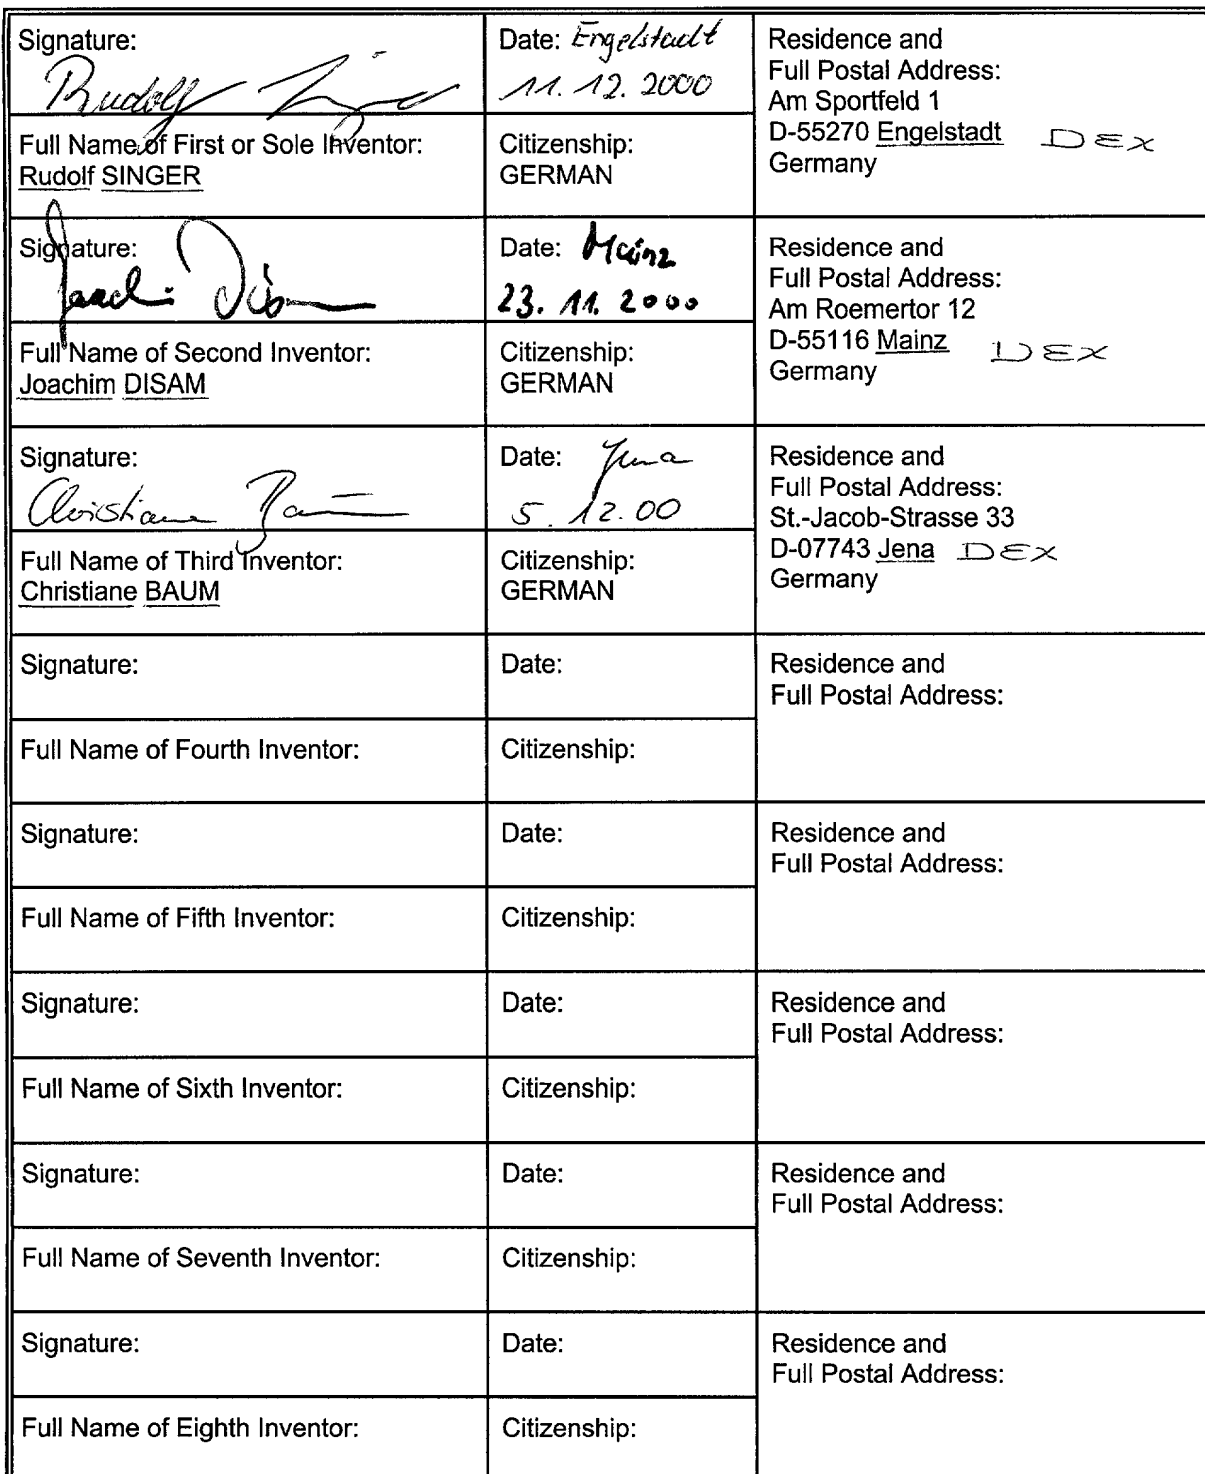 Signature:
Rudolf Singer
Date: Engelstadt
11. 12. 2000
Residence and
Full Postal Address:
Am Sportfeld 1
D-55270 Engelstadt DEX
Germany
Full Name of First or Sole Inventor:
Rudolf SINGER
Citizenship:
GERMAN
Signature:
Joachim Disam
Date: Mainz
23. 11. 2000
Residence and
Full Postal Address:
Am Roemertor 12
D-55116 Mainz DEX
Germany
Full Name of Second Inventor:
Joachim DISAM
Citizenship:
GERMAN
Signature:
Christiane Baum
Date: Jena
5. 12.00
Residence and
Full Postal Address:
St.-Jacob-Strasse 33
D-07743 Jena DEX
Germany
Full Name of Third Inventor:
Christiane BAUM
Citizenship:
GERMAN
Signature:
Date:
Residence and
Full Postal Address:
Full Name of Fourth Inventor:
Citizenship:
Signature:
Date:
Residence and
Full Postal Address:
Full Name of Fifth Inventor:
Citizenship:
Signature:
Date:
Residence and
Full Postal Address:
Full Name of Sixth Inventor:
Citizenship:
Signature:
Date:
Residence and
Full Postal Address:
Full Name of Seventh Inventor:
Citizenship:
Signature:
Date:
Residence and
Full Postal Address:
Full Name of Eighth Inventor:
Citizenship: